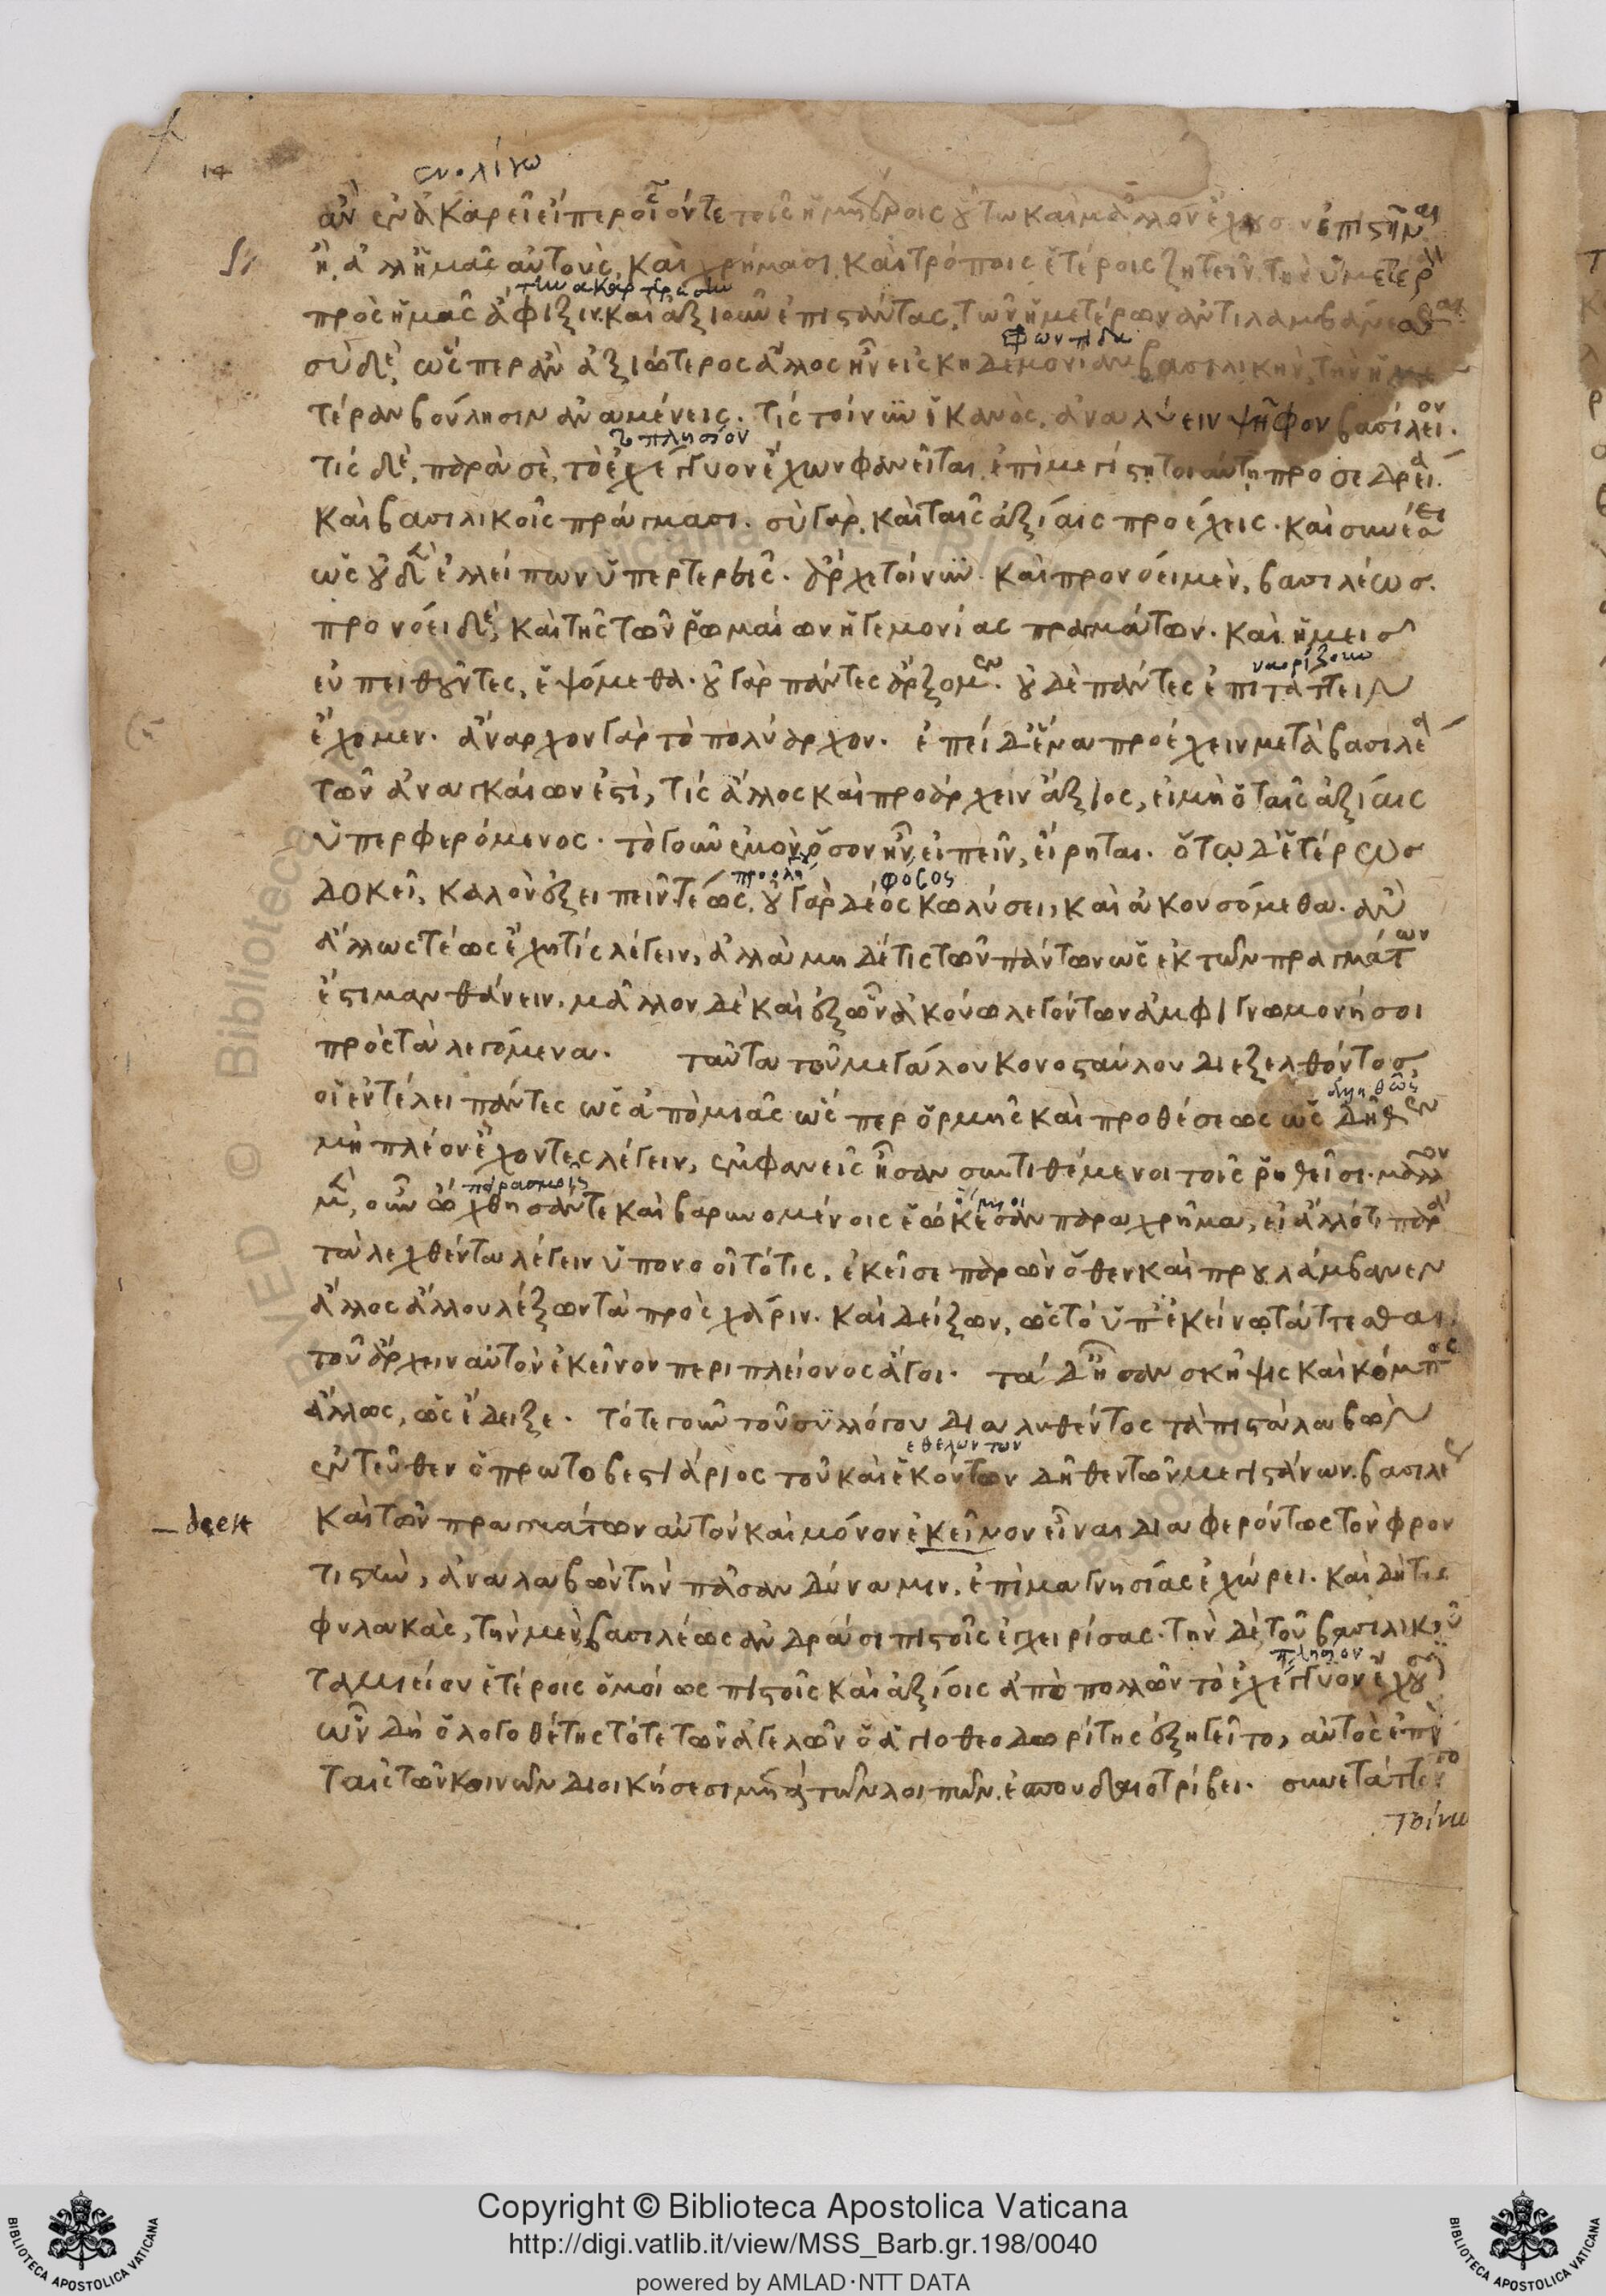 ἐν ὀλίγῳ
ἂν ἐν ἀκαρεῖ εἴπερ οἷοί τε τοῖς ἡμετέροις οὕτω καὶ μᾶλλον ἔχουσιν ἐπιστῆναι
ἢ ἀλλ' ἡμᾶς αὐτοὺς, καὶ χρήμασι, καὶ τρόποις ἑτέροις ζητεῖν τὴν ὑμετέραν
πρὸς ἡμᾶς ἄφιξιν. καὶ ἀξιοῦν ἐπιστάντας, τῶν ἡμετέρων ἀντιλαμβάνεσθαι.
φροντίδα
σὺ δὲ, ὥσπερ ἂν ἀξιώτερος ἄλλος ἦν εἰς κηδεμονίαν βασιλικὴν, τὴν ἡμε
τέραν βούλησιν ἀναμένεις. τίς τοίνυν ἱκανὸς, ἀναλύειν ψῆφον βασίλειον.
τὸ πλησίον
τίς δὲ, παρὰ σὲ, τὸ ἐχέγγυον ἔχων φανεῖται, ἐπὶ μεγίστῃ τοιαύτῃ προσεδρείᾳ.
καὶ βασιλικοῖς πράγμασι. σὺ γὰρ, καὶ ταῖς ἀξίαις προέχεις. καὶ συνέσει
ὡς οὐδὲν ἐλλείπων ὑπερτερεῖς. ἄρχε τοίνυν. καὶ προνόει μὲν, βασιλέως.
προνόει δὲ, καὶ τῆς τῶν ῥωμαίων ἡγεμονίας πραγμάτων. καὶ ἡμεῖς
ναορίζειν
εὐπειθοῦντες, ἑψόμεθα. οὐ γὰρ πάντες ἄρξομεν. οὐδὲ πάντες ἐπιτάττειν
ἔχομεν. ἄναρχον γὰρ τὸ πολύαρχον. ἐπεὶ δ' ἕνα προέχειν μετὰ βασιλέα
τῶν ἀναγκαίων ἐστὶ, τίς ἄλλος καὶ προάρχειν ἄξιος, εἰ μὴ ὁ ταῖς ἀξίαις
ὑπερφερόμενος. τὸ γοῦν ἐμὸν ὅσον ἦν εἰπεῖν, εἴρηται. ὅτῳ δ' ἑτέρως
φόβος
δοκεῖ, καλὸν ἐξειπεῖν τέως. οὐ γὰρ δέος κωλύσει, καὶ ἀκουσόμεθα. ἂν
ἄλλως τέως ἔχῃ τίς λέγειν, ἀλλὰ μηδέ τις τῶν πάντων ὡς ἐκ τῶν πραγμάτων
ἔστι μανθάνειν. μᾶλλον δὲ καὶ ἐξ ὧν ἀκούω λεγόντων ἀμφιγνωμονήσοι
πρὸς τὰ λεγόμενα. ταῦτα τοῦ μεγάλου κονοσταύλου διεξελθόντος,
ἀληθῶς
οἱ ἐν τέλει πάντες ὡς ἀπὸ μιᾶς ὥσπερ ὁρμῆς καὶ προθέσεως ὡς δῆθεν
μὴ πλέον ἔχοντες λέγειν, ἐμφανεῖς ἦσαν συντιθέμενοι τοῖς ῥηθεῖσι. μᾶλλον
μὲν οὖν ἀχθησθέντε καὶ βαρυνομένοις ἐῴκεσαν παραχρῆμα, εἰ ἄλλό τι παρὰ
τὰ λεχθέντα λέγειν ὑπονοοῖτό τις. ἐκεῖσε παρὼν ὅθεν καὶ προυλάμβανεν
ἄλλος ἄλλου λέξων τὰ πρὸς χάριν. καὶ δείξων, ὡς τὸ ὑπ' ἐκείνῳ τάττεσθαι,
τοῦ ἄρχειν αὐτὸν ἐκεῖνον περὶ πλείονος ἄγοι. τὰ δ' ἦσαν σκῆψις καὶ κόμπος
ἄλλως, ὡς ἔδειξε. τότε γοῦν τοῦ συλλόγου διαλυθέντος τὰ πιστὰ λαβὼν
ἐθελόντων
ἐντεῦθεν ὁ πρωτοβεστιάριος τοῦ καὶ ἑκόντων δῆθεν τῶν μεγιστάνων. βασιλέως
deest
καὶ τῶν πραγμάτων αὐτόν καὶ μόνον ἐκεῖνον εἶναι διαφερόντως τὸν φρον
τιστὴν, ἀναλαβὼν τὴν πᾶσαν δύναμιν, ἐπὶ μαγνησίας ἐχώρει. καὶ δή τις
φυλακὰς, τὴν μὲν βασιλέως ἀνδράσι πιστοῖς ἐγχειρίσας. τὴν δὲ τοῦ βασιλικοῦ
πλησίον
ταμιείου ἑτέροις ὁμοίως πιστοῖς καὶ ἀξίοις ἀπὸ πολλῶν τὸ ἐχέγγυον ἔχουσιν
ὧν δὴ ὁ λογοθέτης τότε τῶν ἀγελῶν ὁ ἁγιοθεοδωρίτης ἐξηγεῖτο, αὐτὸς ἐπὶ
ταῖς τῶν κοινῶν διοικήσεσι μετὰ τῶν λοιπῶν. ἐνσπουδαιοτρίβει. συνετάττετο
τοίνυν